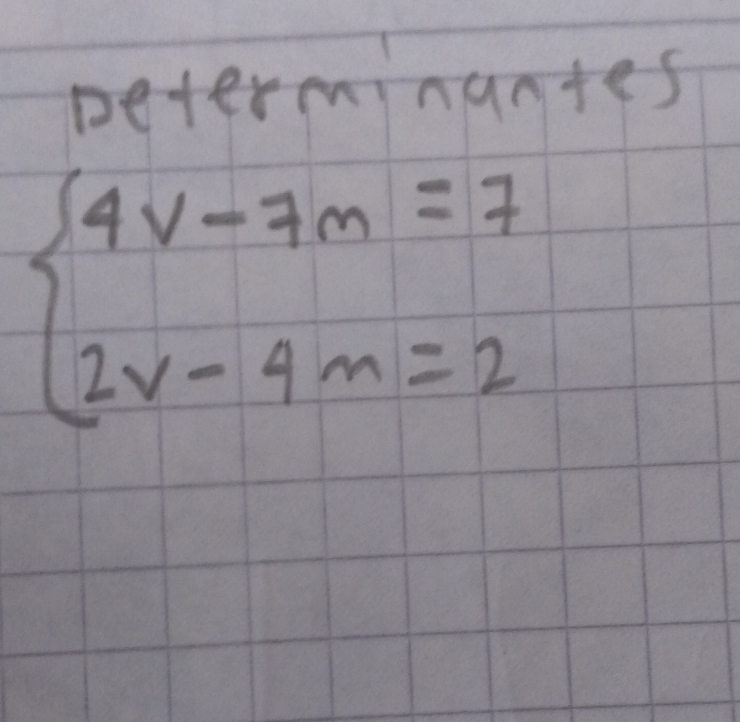 Determinantes
4v-7m=7
2v-4m=2